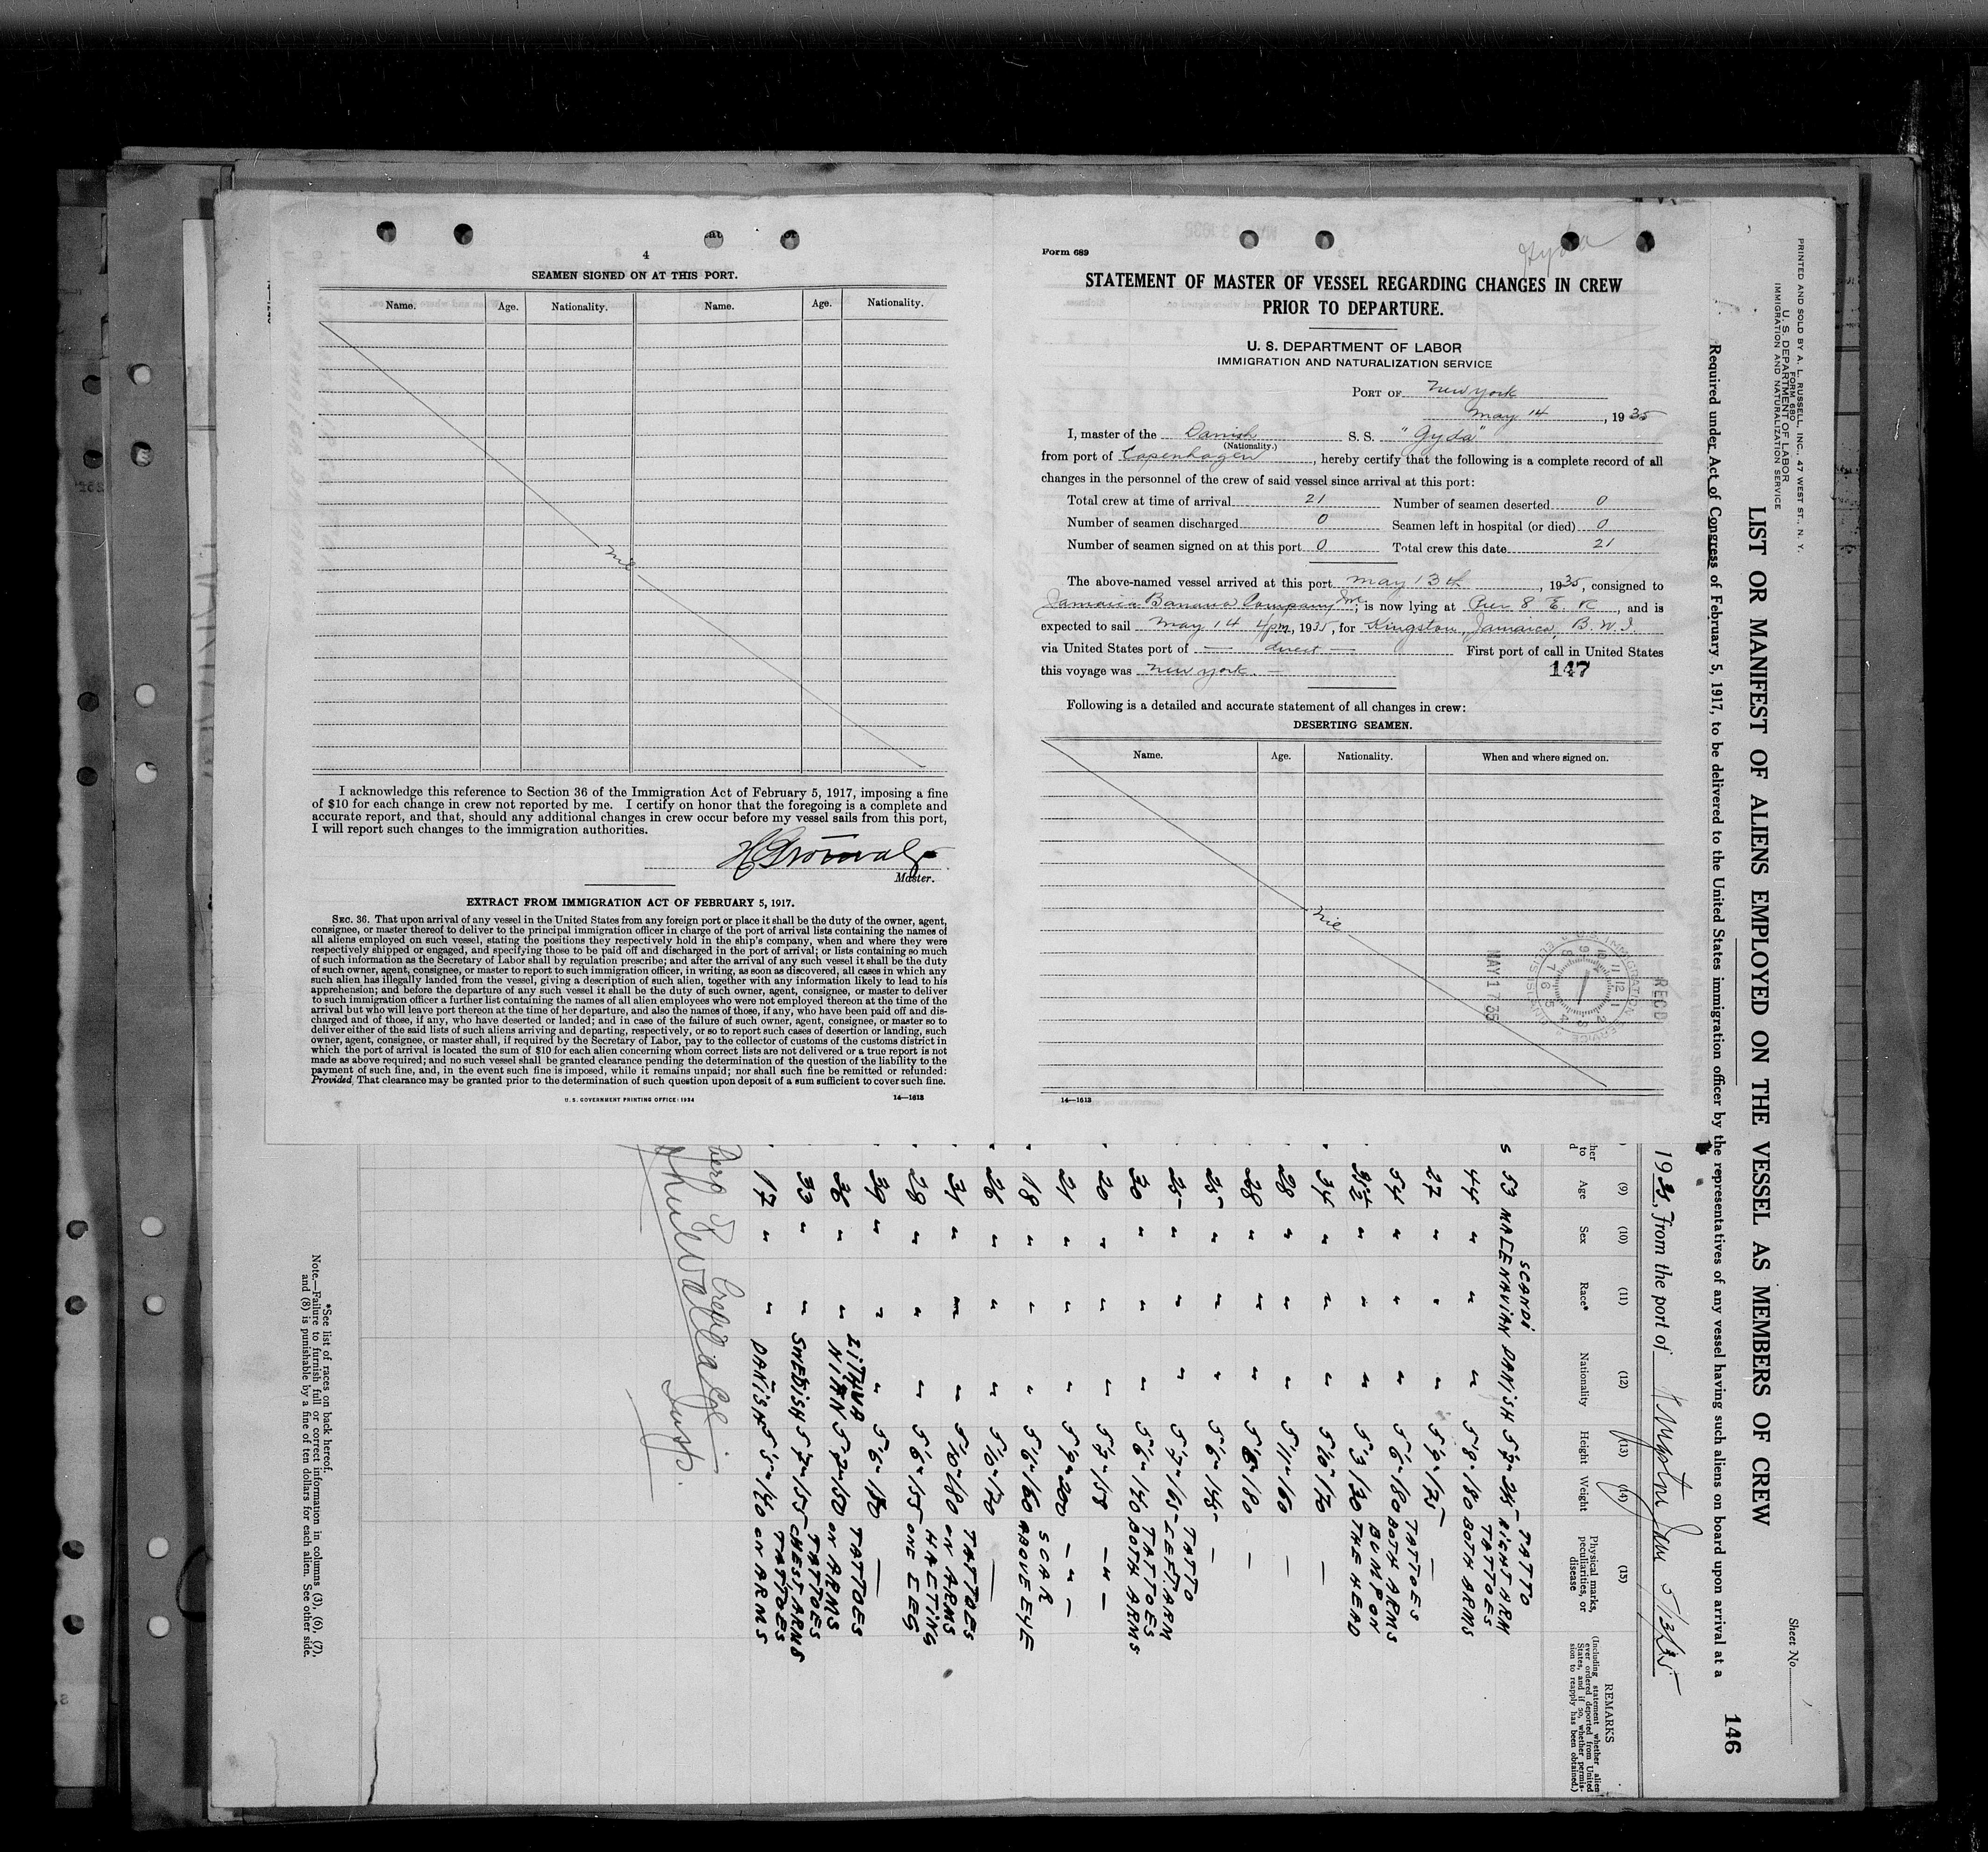 4
SEAMEN SIGNED ON AT THIS PORT.
Name. Age. Nationality. Name. Age. Nationality.
I acknowledge this reference to Section 36 of the Immigration Act of February 5, 1917, imposing a fine
of $10 for each change in crew not reported by me. I certify on honor that the foregoing is a complete and
accurate report, and that, should any additional changes in crew occur before my vessel sails from this port,
I will report such changes to the immigration authorities.
Master.
EXTRACT FROM IMMIGRATION ACT OF FEBRUARY 5, 1917.
SEC. 36. That upon arrival of any vessel in the United States from any foreign port or place it shall be the duty of the owner, agent,
consignee, or master thereof to deliver to the principal immigration officer in charge of the port of arrival lists containing the names of
all aliens employed on such vessel, stating the positions they respectively hold in the ship's company, when and where they were
respectively shipped or engaged, and specifying those to be paid off and discharged in the port of arrival; or lists containing so much
of such information as the Secretary of Labor shall by regulation prescribe; and after the arrival of any such vessel it shall be the duty
of such owner, agent, consignee, or master to report to such immigration officer, in writing, as soon as discovered, all cases in which any
such alien has illegally landed from the vessel, giving a description of such alien, together with any information likely to lead to his
apprehension; and before the departure of any such vessel it shall be the duty of such owner, agent, consignee, or master to deliver
to such immigration officer a further list containing the names of all alien employees who were not employed thereon at the time of the
arrival but who will leave port thereon at the time of her departure, and also the names of those, if any, who have been paid off and dis-
charged and of those, if any, who have deserted or landed; and in case of the failure of such owner, agent, consignee, or master so to
deliver either of the said lists of such aliens arriving and departing, respectively, or so to report such cases of desertion or landing, such
owner, agent, consignee, or master shall, if required by the Secretary of Labor, pay to the collector of customs of the customs district in
which the port of arrival is located the sum of $10 for each alien concerning whom correct lists are not delivered or a true report is not
made as above required; and no such vessel shall be granted clearance pending the determination of the question of the liability to the
payment of such fine, and, in the event such fine is imposed, while it remains unpaid; nor shall such fine be remitted or refunded:
Provided, That clearance may be granted prior to the determination of such question upon deposit of a sum sufficient to cover such fine.
U. S. GOVERNMENT PRINTING OFFICE: 1934 14—1613
Gyda
Form 689
STATEMENT OF MASTER OF VESSEL REGARDING CHANGES IN CREW
PRIOR TO DEPARTURE.
U. S. DEPARTMENT OF LABOR
IMMIGRATION AND NATURALIZATION SERVICE
PORT OF New York
May 14, 1935
I, master of the Danish S. S. "Gyda"
(Nationality.)
from port of Copenhagen, hereby certify that the following is a complete record of all
changes in the personnel of the crew of said vessel since arrival at this port:
Total crew at time of arrival 21 Number of seamen deserted 0
Number of seamen discharged 0 Seamen left in hospital (or died) 0
Number of seamen signed on at this port 0 Total crew this date 21
The above-named vessel arrived at this port May 13th, 1935, consigned to
Jamaica Banana Company Inc; is now lying at Pier 8 E. R, and is
expected to sail May 14 4pm, 1935, for Kingston, Jamaica, B. W. I.
via United States port of — direct — First port of call in United States
this voyage was New York. —
147
Following is a detailed and accurate statement of all changes in crew:
DESERTING SEAMEN.
Name. Age. Nationality. When and where signed on.
nil
REC'D
MAY 17 35
14—1613
PRINTED AND SOLD BY A. L. RUSSELL, INC., 47 WEST ST., N. Y.
FORM 680
U. S. DEPARTMENT OF LABOR
IMMIGRATION AND NATURALIZATION SERVICE
Sheet No.
LIST OR MANIFEST OF ALIENS EMPLOYED ON THE VESSEL AS MEMBERS OF CREW
146
Required under Act of Congress of February 5, 1917, to be delivered to the United States immigration officer by the representatives of any vessel having such aliens on board upon arrival at a
1935, from the port of Kingston Jam
(9) (10) (11) (12) (13) (14) (15)
Age Sex Race* Nationality Height Weight Physical marks, peculiarities, or disease
REMARKS
(Including statement whether alien ever ordered deported from United States, and if so, whether permission to reapply has been obtained.)
53 MA SCANDINAVIAN DANISH TATTO RIGHT ARM
44 " " " 5'8" 180 TATTOES BOTH ARMS
27 " " " 5'9" 175 —
54 " " " 5'6" 180 TATTOES BOTH ARMS
" " " 5'3" 130 BUMP ON THE HEAD
34 " " " 5'10" 170 —
28 " " " 5'11" 160 —
28 " " " 180 —
25 " " " 5'6" 145 —
25 " " " 5'7" 165 TATTO LEFT ARM
30 " " " 5'6" 140 TATTOES BOTH ARMS
20 " " " 158 — " —
21 " " " 5'9" 200 — " —
18 " " " 5'6" 160 SCAR ABOVE EYE
26 " " " 5'10" 170 —
31 " " " 5'10" 180 TATTOES ON ARMS
28 " " " 5'6" 155 ONE LEG
39 " " " 5'6" 180 —
36 " " LITHUANIAN 5'7" 150 TATTOES ON ARMS
33 " " SWEDISH 5'7" 155 TATTOES CHEST, ARMS
17 " " DANISH 5'5" 140 TATTOES ON ARMS
Insp.
*See list of races on back hereof.
Note.—Failure to furnish full or correct information in columns (3), (6), (7),
and (8) is punishable by a fine of ten dollars for each alien. See other side.